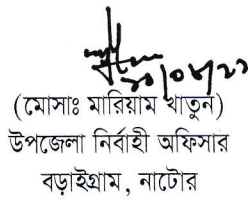 (মোসাঃ মারিয়াম খাতুন)
উপজেলা নির্বাহী অফিসার
বড়াইগ্রাম, নাটোর